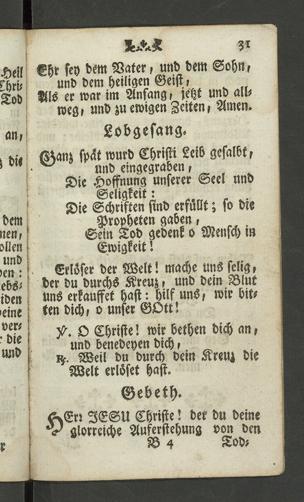 31
Ehr sey dem Vater, und dem Sohn,
und dem heiligen Geist,
Als er war im Anfang, jetzt und all-
weg, und zu ewigen Zeiten, Amen.
Lobgesang.
Ganz spät wurd Christi Leib gesalbt,
und eingegraben,
Die Hoffnung unserer Seel und
Seligkeit;
Die Schriften sind erfüllt; so die
Propheten gaben,
Sein Tod gedenk o Mensch in
Ewigkeit!
Erlöser der Welt! mache uns selig,
der du durchs Kreuz, und dein Blut
uns erkauffet hast: hilf uns, wir bit-
ten dich, o unser GOtt!
℣. O Christe! wir bethen dich an,
und benedeyen dich,
℟. Weil du durch dein Kreuz die
Welt erlöset hast.
Gebeth.
HErr JESU Christe! der du deine
glorreiche Auferstehung von den
B 4 Tod-
Heil
Chri-
Tod
an,
die
dem
ollen
und
und